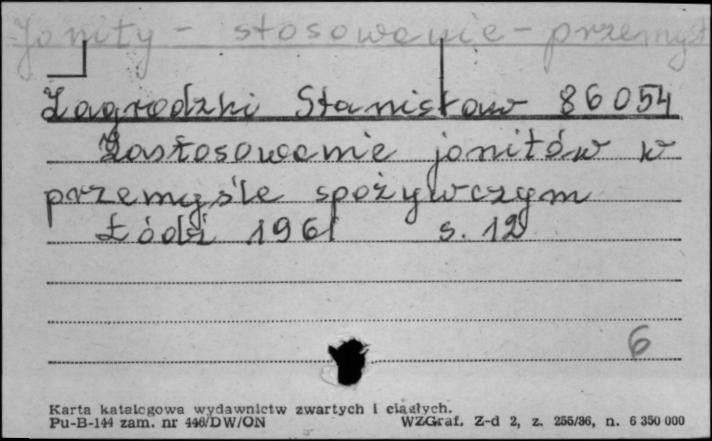 Jonity - stosowanie - przemysł
Zagrodzki Stanisław 86054
Zastosowanie jonitów w
przemyśle spożywczym
Łódź 1961 s. 12
6
Karta katalogowa wydawnictw zwartych i ciągłych.
Pu-B-144 zam. nr 446/DW/ON WZGraf. Z-d 2, z. 255/86, n. 6 350 000